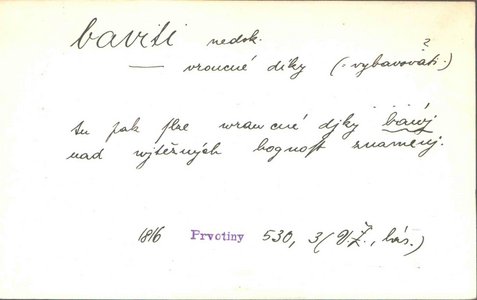 baviti nedok.
— vroucné díky (: vybavovati?)
tu pak slze wraucné djky bawj
nad wjtězných bognost znamenj.
1816 Prvotiny 530, 3 (V.Ž., bás.)